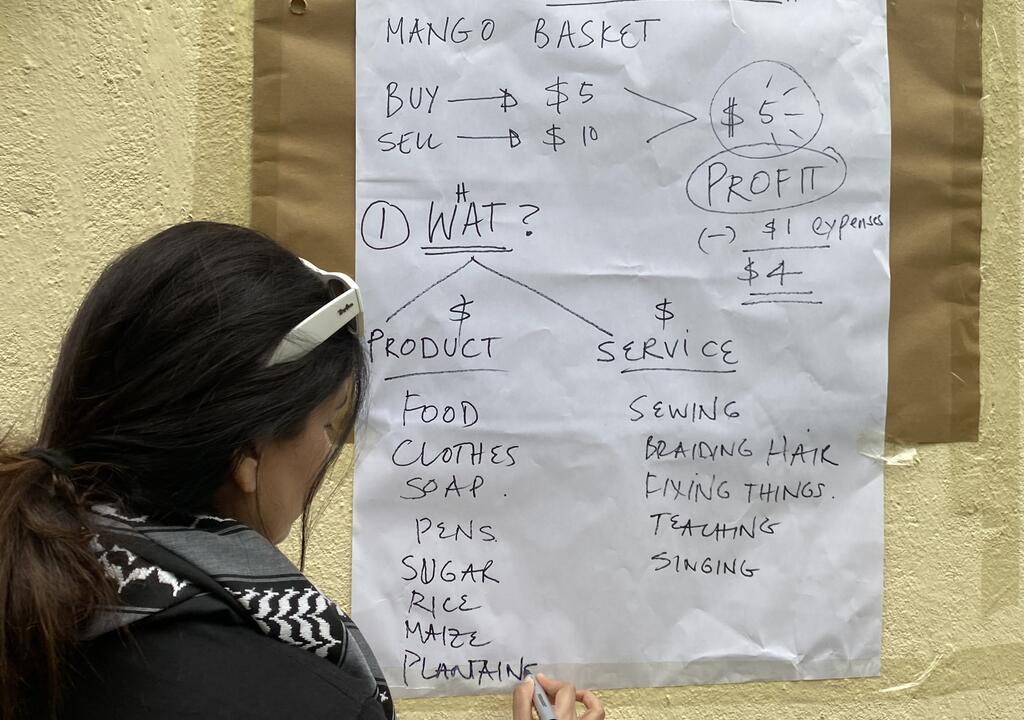 MANGO BASKET
BUY → $5
SELL → $10
$5
PROFIT
(-) $1 expenses
$4
① WHAT?
$ $
PRODUCT SERVICE
FOOD SEWING
CLOTHES BRAIDING HAIR
SOAP. FIXING THINGS.
PENS. TEACHING
SUGAR SINGING
RICE
MAIZE
PLANTAINS